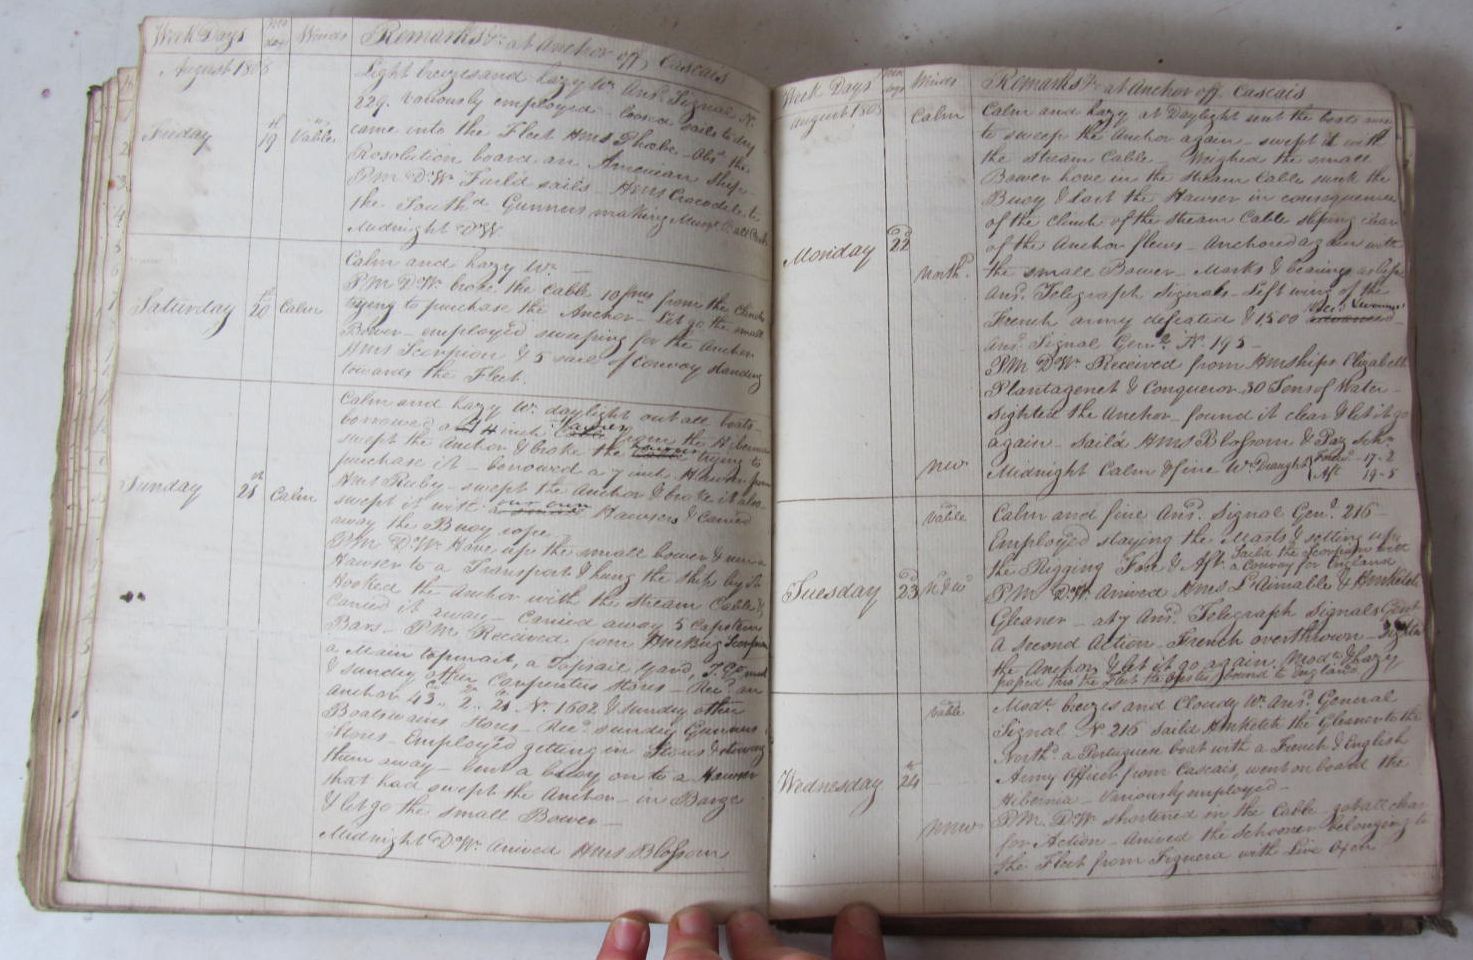 Week Days Winds Remarks &c at Anchor off Cascais
August 1808
Light breezes and hazy Wr. Ansd. Signal No.
229. Variously employed - loosed sails to dry
came into the Fleet HMS Phoebe - Obsd. the
Friday 19 Vable
Resolution board an American Ship -
PM Do Wr Furled sails - HMS Crocodile to
the Southd Gunners making
Midnight Do Wr
Calm and hazy Wr. -
PM Do Wr broke the Cable 10 fms from the Clinch
Saturday 20 Calm
trying to purchase the Anchor - Let go the small
Bower - employed sweeping for the Anchor
HMS Scorpion & 5 sail of Convoy standing
towards the Fleet.
Calm and hazy Wr. daylight out all boats -
borrowed a 4 inch Hawser from the Hibernia
swept the Anchor & broke the trying to
purchase it - borrowed a 7 inch Hawser from
Sunday 21 Calm
HMS Ruby - swept the Anchor & broke it also
swept it with our own Hawsers & carried
away the Buoy rope
PM Do Wr Hove up the small bower & run a
Hawser to a Transport & hung the Ship by it
Hooked the Anchor with the Stream Cable &
carried it away - Carried away 5 Capstern
Bars - PM Received from HM Brig Scorpion
a Main topmast, a Topsail Yard,
& sundry other Carpenters Stores - Recd. an
Anchor 43 .. 2 .. 21 No. 1602 & sundry other
Boatswains Stores - Recd. sundry Gunners
Stores - Employed getting in Stores & stowing
them away - bent a buoy on to a Hawser
that had swept the Anchor - in Barge
& let go the small Bower -
Midnight Do Wr. arrived HMS Blossom
Week Days Winds Remarks &c at Anchor off Cascais
August 1808 Calm
Calm and hazy at Daylight sent the boats
to sweep the Anchor again - swept it with
the Stream Cable - Weighed the small
Bower hove in the Stream Cable sunk the
Buoy & lost the Hawser in consequence
of the Clinch of the Stream Cable sliping clear
Monday 22
of the Anchor flews - Anchored again with
Northd.
the small Bower - Marks & bearings as before
Ansd. Telegraph Signals - Left wing of the
French army defeated & 1500
Ansd. Signal Genl. No. 195 -
PM Do Wr. Received from HMships Elizabeth
Plantagenet & Conqueror 30 Tons of Water -
Sighted the Anchor - found it clear & let it go
again - Sail'd HMS Blossom &
NW
Midnight Calm & fine Wr. Draught Forwd. 17 - 2
Aft 19 - 5
Vable
Calm and fine Ansd. Signal Genl. 216 -
Employed staying the Masts & setting up
the Rigging Fore & Aft Sail'd the Scorpion with
a Convoy for England
Tuesday 23
PM Do Wr Arrived HMS L'Aimable & HMKetch
Gleaner - at 7 Ansd. Telegraph Signals
a second Action - French overthrown - Sighted
the Anchor & let it go again. Modte. & hazy
Vable
Modte. breezes and Cloudy Wr. Ansd. General
Signal No 216 Sail'd HMKetch the Gleaner to the
Northd. a Portuguese boat with a French & English
Wednesday 24
Army Officer from Cascais, went on board the
Hibernia - Variously employed -
NNW
PM Do Wr shortened in the Cable got all clear
for Action - Arrived the Schooner belonging to
the Fleet from Figuera with Live Oxen